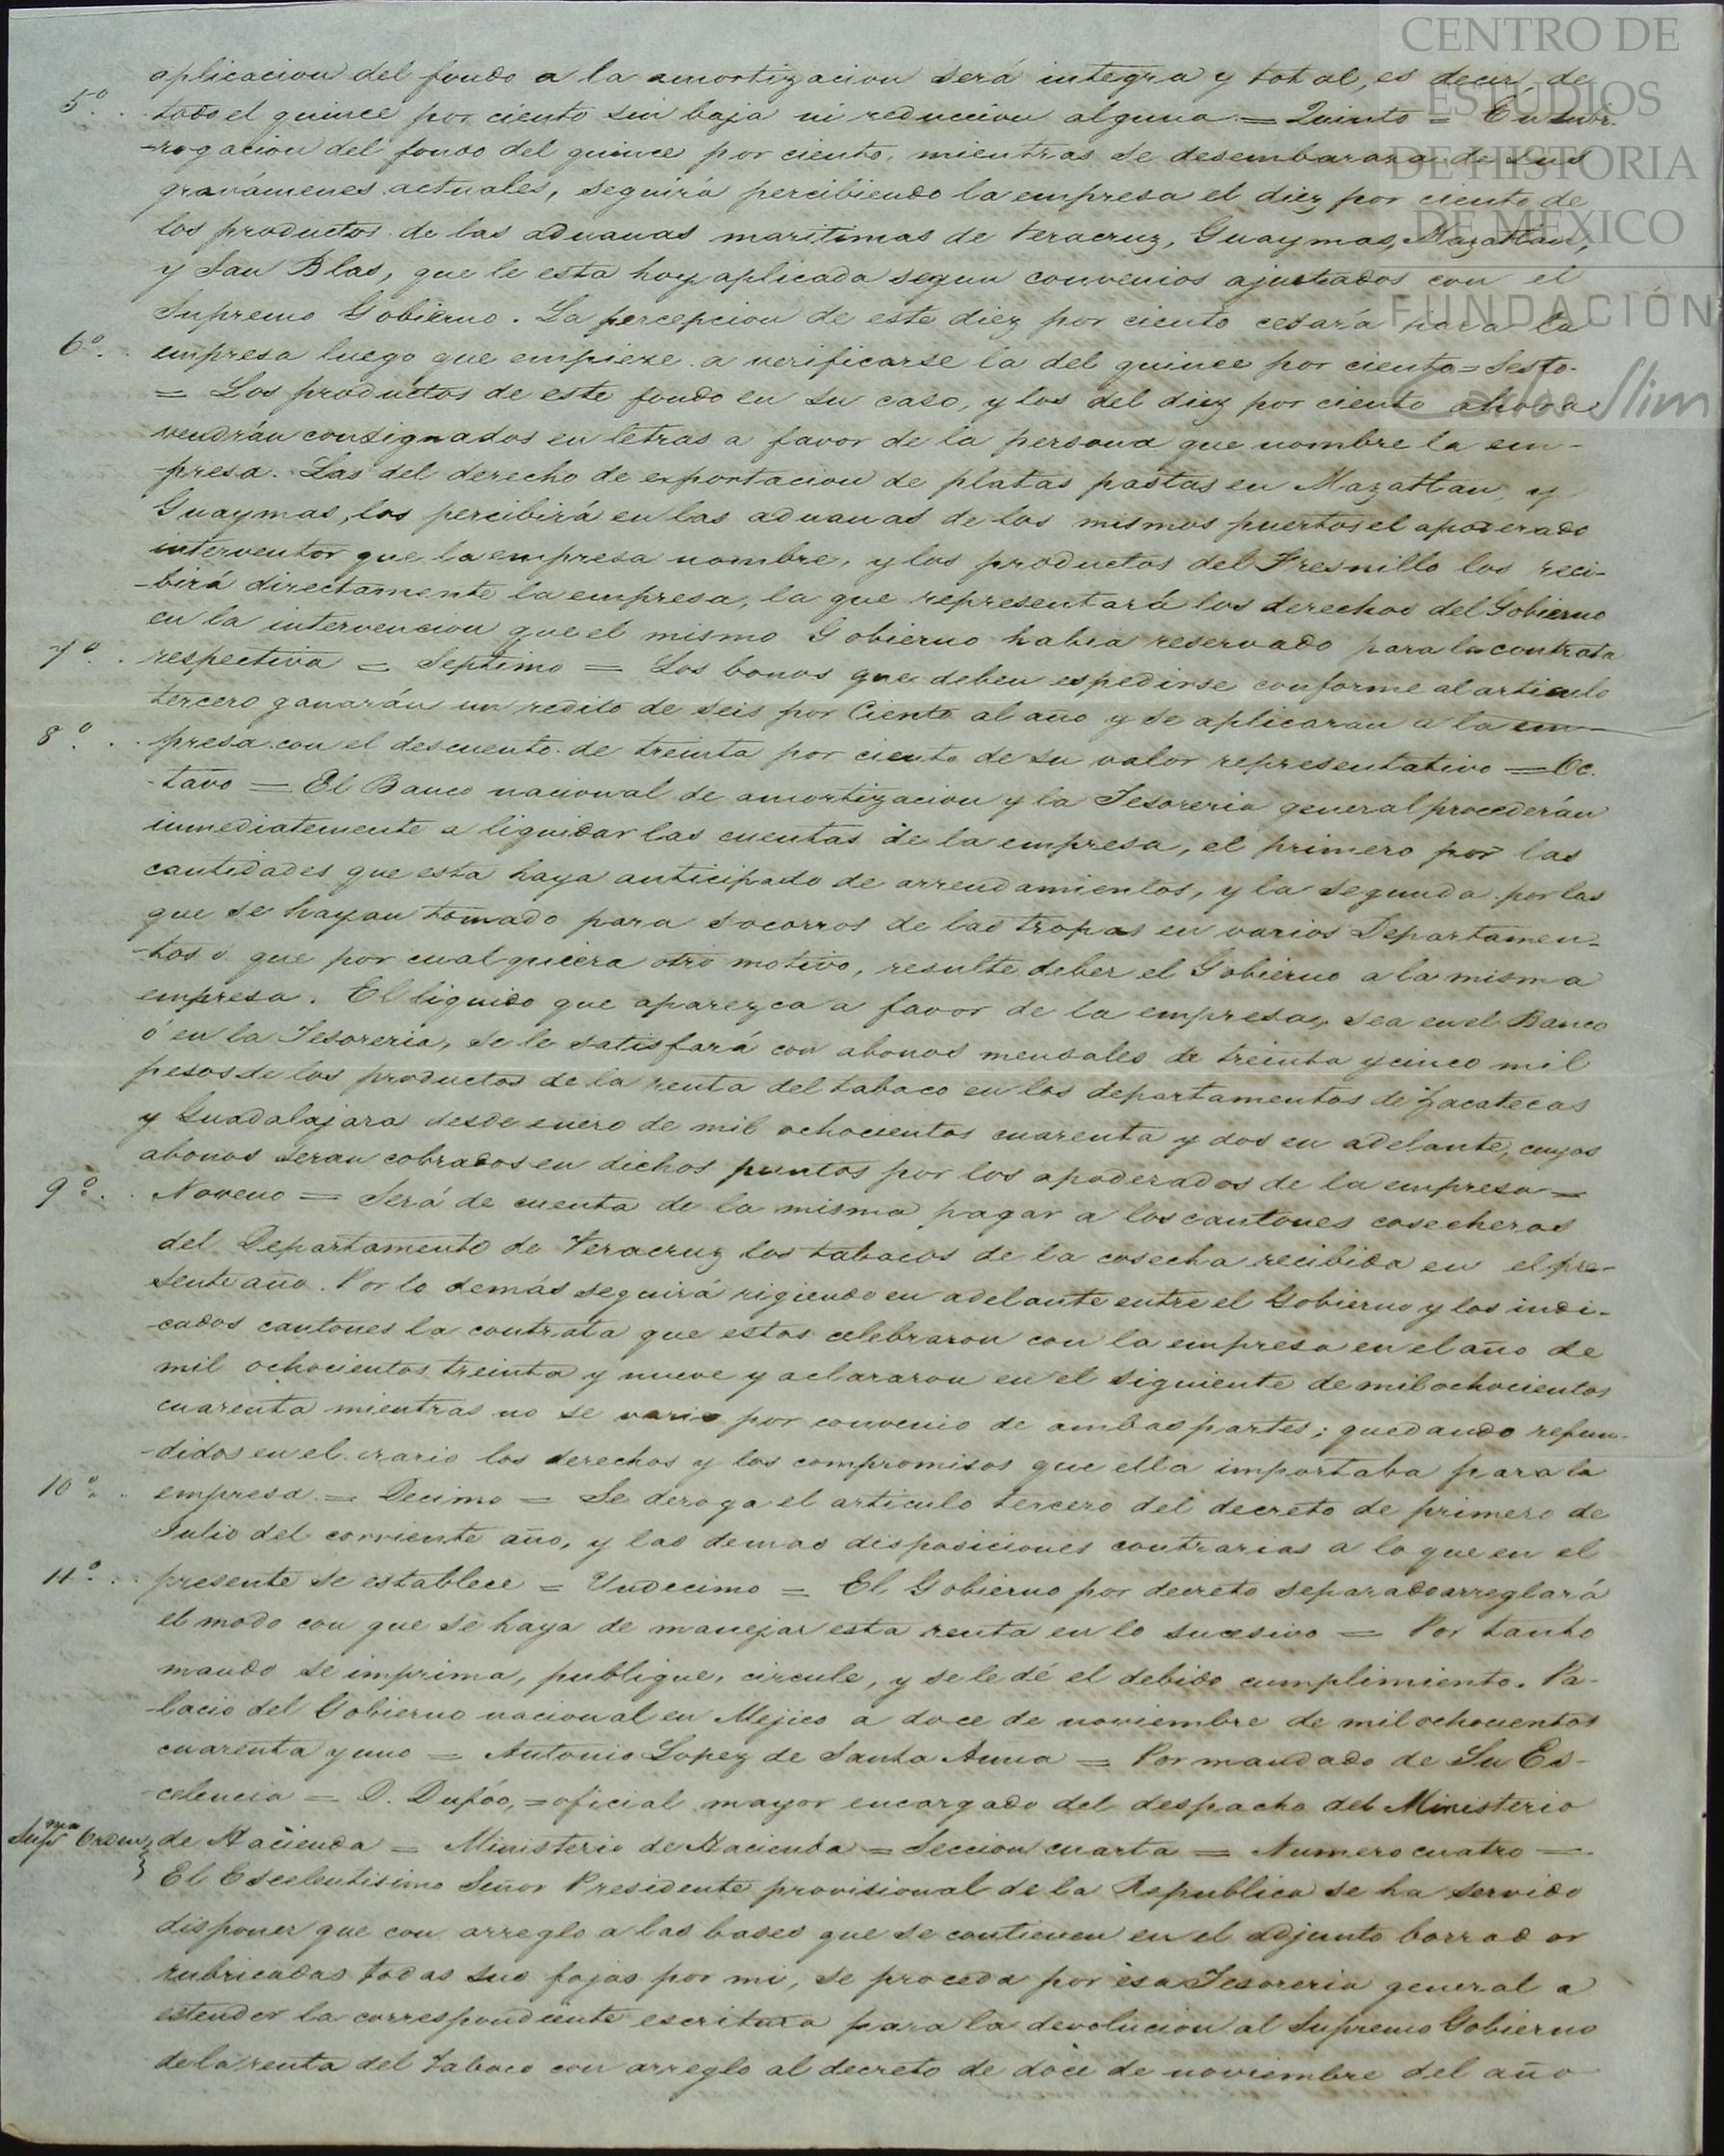 CENTRO DE
ESTUDIOS
DE HISTORIA
DE MÉXICO
FUNDACIÓN
Carlos Slim
aplicacion del fondo a la amortizacion será integra y total, es decir de
5º. . todo el quince por ciento sin baja ni reduccion alguna = Quinto = En sub-
-rogacion del fondo del quince por ciento, mientras se desembaraza de sus
gravámenes actuales, seguirá percibiendo la empresa el diez por ciento de
los productos de las aduanas maritimas de Veracruz, Guaymas, Mazatlan,
y San Blas, que le esta hoy aplicada segun convenios ajustados con el
Supremo Gobierno. La percepcion de este diez por ciento cesará para la
6º. . empresa luego que empieze a verificarse la del quince por ciento = Sesto-
= Los productos de este fondo en su caso, y los del diez por ciento ahora
vendrán consignados en letras a favor de la persona que nombre la em-
-presa. Las del derecho de exportacion de platas pastas en Mazatlan y
Guaymas, los percibirá en las aduanas de los mismos puertos el apoderado
interventor que la empresa nombre, y los productos del Fresnillo los reci-
-birá directamente la empresa, la que representará los derechos del Gobierno
en la intervencion que el mismo Gobierno habia reservado para la contrata
7º. . respectiva = Septimo = Los bonos que deben espedirse conforme al articulo
tercero ganarán un redito de seis por Ciento al año y se aplicaran a la em-
8º. . presa con el descuento de treinta por ciento de su valor representativo = Oc-
-tavo = El Banco nacional de amortizacion y la Tesoreria general procederán
inmediatemente a liquidar las cuentas de la empresa, el primero por las
cantidades que esta haya anticipado de arrendamientos, y la segunda por las
que se hayan tomado para socorros de las tropas en varios Departamen-
-tos ó que por cualquiera otro motivo, resulte deber el Gobierno a la misma
empresa. El liquido que aparezca a favor de la empresa, sea en el Banco
ó en la Tesoreria, se le satisfará con abonos mensales de treinta y cinco mil
pesos de los productos de la renta del tabaco en los departamentos de Zacatecas
y Guadalajara desde enero de mil ochocientos cuarenta y dos en adelante, cuyos
abonos seran cobrados en dichos puntos por los apoderados de la empresa =
9º. . Noveno = Será de cuenta de la misma pagar a los cantones cosecheros
del Departamento de Veracruz los tabacos de la cosecha recibida en el pre-
sente año. Por lo demás seguirá rigiendo en adelante entre el Gobierno y los indi-
-cados cantones la contrata que estos celebraron con la empresa en el año de
mil ochocientos treinta y nueve y aclararon en el siguiente de mil ochocientos
cuarenta mientras no se varie por convenio de ambas partes; quedando refun-
-didos en el erario los derechos y los compromisos que ella importaba para la
10º. . empresa = Decimo = Se deroga el articulo tercero del decreto de primero de
Julio del corriente año, y las demas disposiciones contrarias a lo que en el
11º. . presente se establece = Undecimo = El Gobierno por decreto separado arreglará
el modo con que se haya de manejar esta renta en lo sucesivo = Por tanto
mando se imprima, publique, circule, y se le dé el debido cumplimiento. Pa-
-lacio del Gobierno nacional en Mejico a doce de noviembre de mil ochocientos
cuarenta y uno = Antonio Lopez de Santa Anna = Por mandado de Su Es-
-celencia = D. Dufóo, = oficial mayor encargado del despacho del Ministerio
Supma Orden de Hacienda = Ministerio de Hacienda = Seccion cuarta = Numero cuatro =
El Escelentisimo Señor Presidente provisional de la Republica se ha servido
disponer que con arreglo a las bases que se contienen en el adjunto borrador
rubricadas todas sus fojas por mi, se proceda por esa Tesoreria general a
estender la correspondiente escritura para la devolucion al Supremo Gobierno
de la renta del Tabaco con arreglo al decreto de doce de noviembre del año